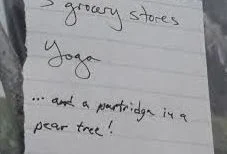 3 grocery stores
Yoga
... and a partridge in a
pear tree!